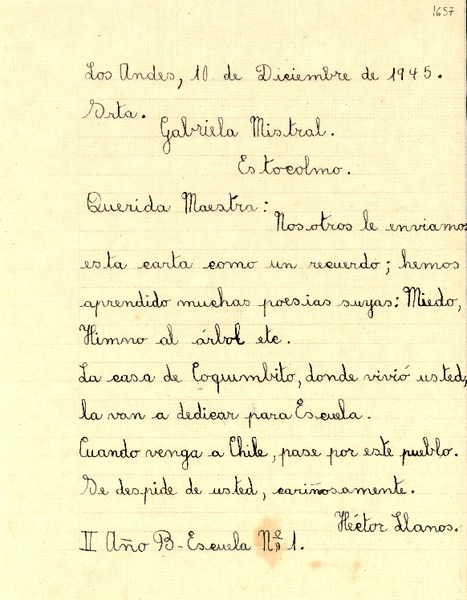 1657
Los Andes, 10 de Diciembre de 1945.
Srta.
Gabriela Mistral.
Estocolmo.
Querida Maestra:
Nosotros le enviamos
esta carta como un recuerdo; hemos
aprendido muchas poesias suyas: Miedo,
Himno al árbol etc.
La casa de Coquimbito, donde vivió usted,
la van a dedicar para Escuela.
Cuando venga a Chile, pase por este pueblo.
Se despide de usted, cariñosamente.
Héctor Llanos.
II Año B - Escuela Nº 1.